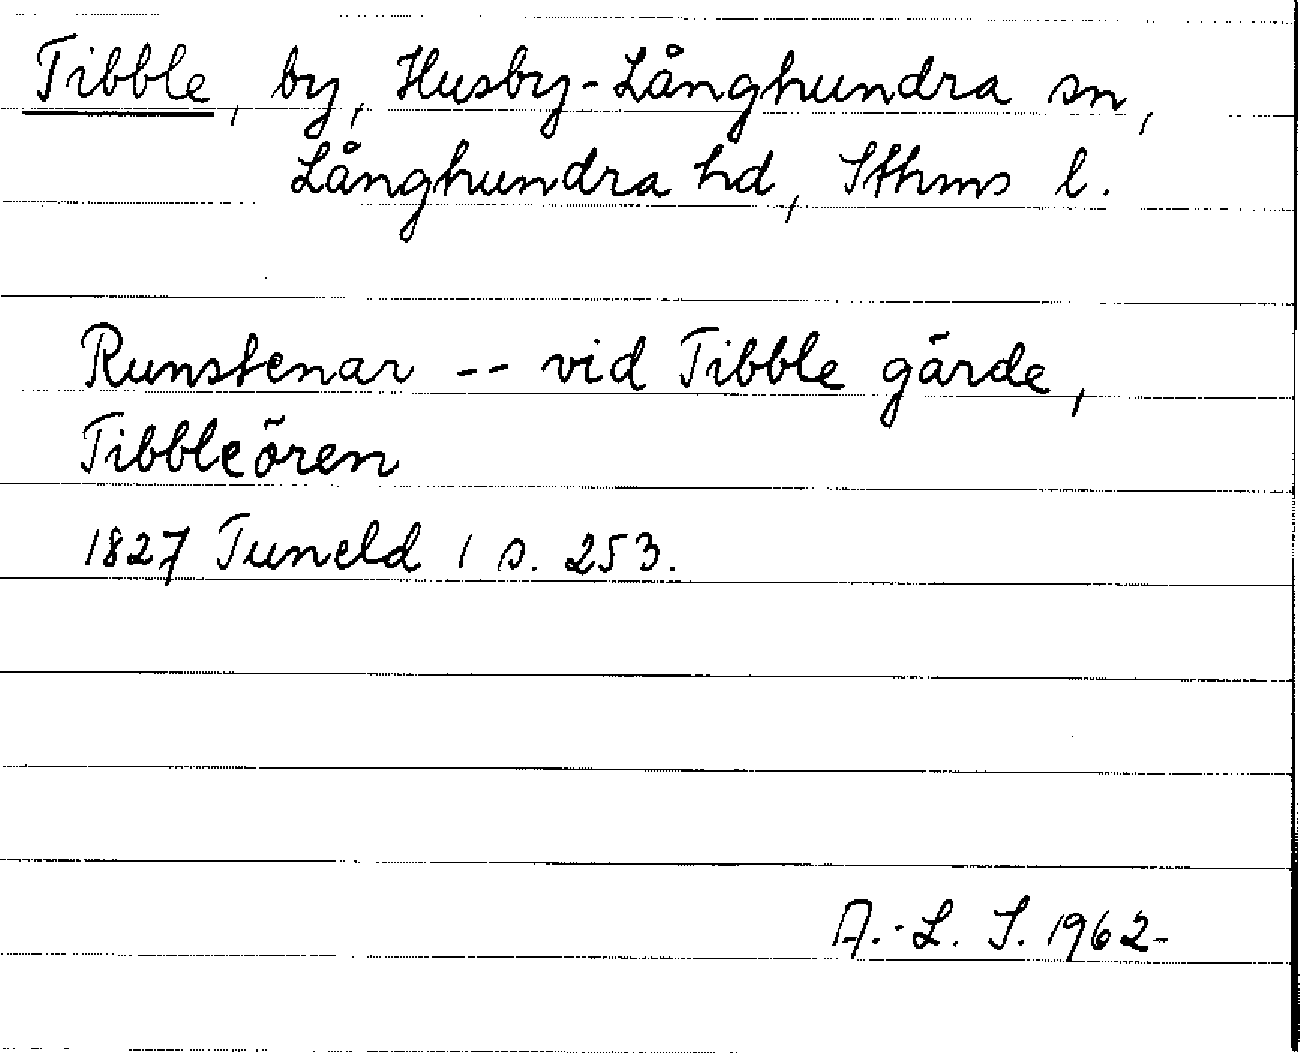 Tibble, by, Husby-Långhundra sn,
Långhundra hd, Sthms l.
Runstenar -- vid Tibble gärde,
Tibbleören
1827 Tuneld 1 s. 253.
A.-L. S. 1962-